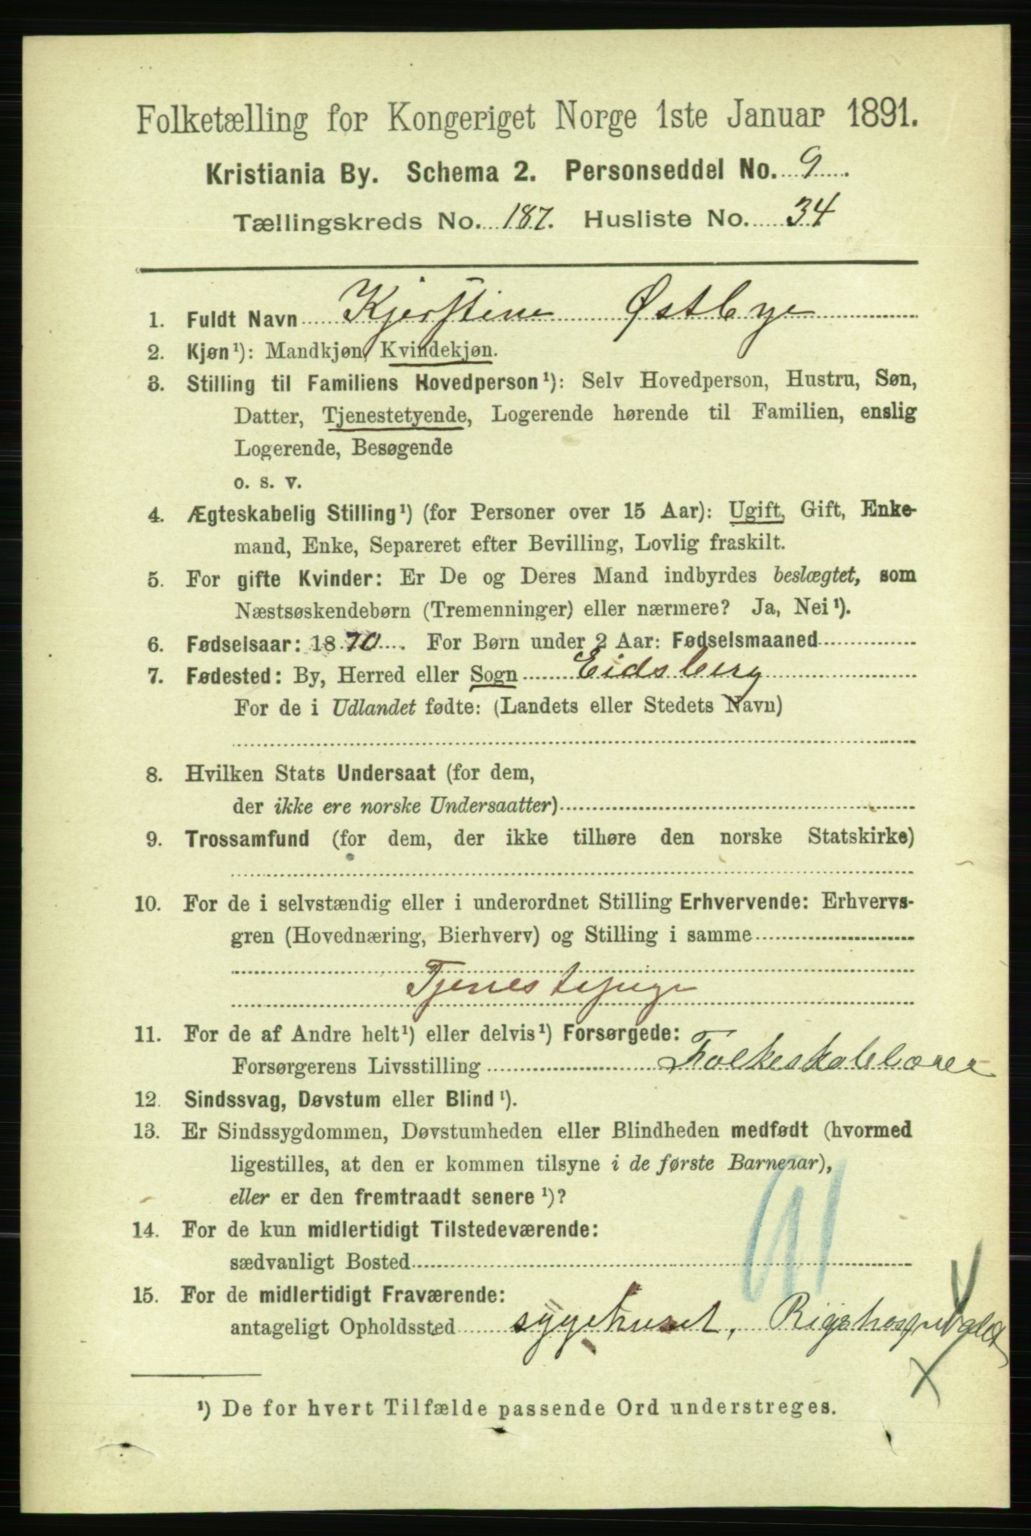 Folketælling for Kongeriget Norge 1ste Januar 1891.
Kristiania By. Schema 2. Personseddel No. 9.
Tællingskreds No. 187. Husliste No. 34
1. Fuldt Navn Kjerstine Østbye
2. Kjøn¹): Mandkjøn, Kvindekjøn.
3. Stilling til Familiens Hovedperson¹): Selv Hovedperson, Hustru, Søn,
Datter, Tjenestetyende, Logerende hørende til Familien, enslig
Logerende, Besøgende
o. s. v.
4. Ægteskabelig Stilling¹) (for Personer over 15 Aar): Ugift, Gift, Enke-
mand, Enke, Separeret efter Bevilling, Lovlig fraskilt.
5. For gifte Kvinder: Er De og Deres Mand indbyrdes beslægtet, som
Næstsøskendebørn (Tremenninger) eller nærmere? Ja, Nei¹).
6. Fødselsaar: 1870. For Børn under 2 Aar: Fødselsmaaned
7. Fødested: By, Herred eller Sogn Eidsberg
For de i Udlandet fødte: (Landets eller Stedets Navn)
8. Hvilken Stats Undersaat (for dem,
der ikke ere norske Undersaatter)
9. Trossamfund (for dem, der ikke tilhøre den norske Statskirke)
10. For de i selvstændig eller i underordnet Stilling Erhvervende: Erhvervs-
gren (Hovednæring, Bierhverv) og Stilling i samme
Tjenestepige
11. For de af Andre helt¹) eller delvis¹) Forsørgede:
Forsørgerens Livsstilling Folkeskolelærer
12. Sindssvag, Døvstum eller Blind¹).
13. Er Sindssygdommen, Døvstumheden eller Blindheden medfødt (hvormed
ligestilles, at den er kommen tilsyne i de første Barneaar),
eller er den fremtraadt senere¹)?
14. For de kun midlertidigt Tilstedeværende:
sædvanligt Bosted
15. For de midlertidigt Fraværende:
antageligt Opholdssted sygehuset, Rigshospitalet
¹) De for hvert Tilfælde passende Ord understreges.